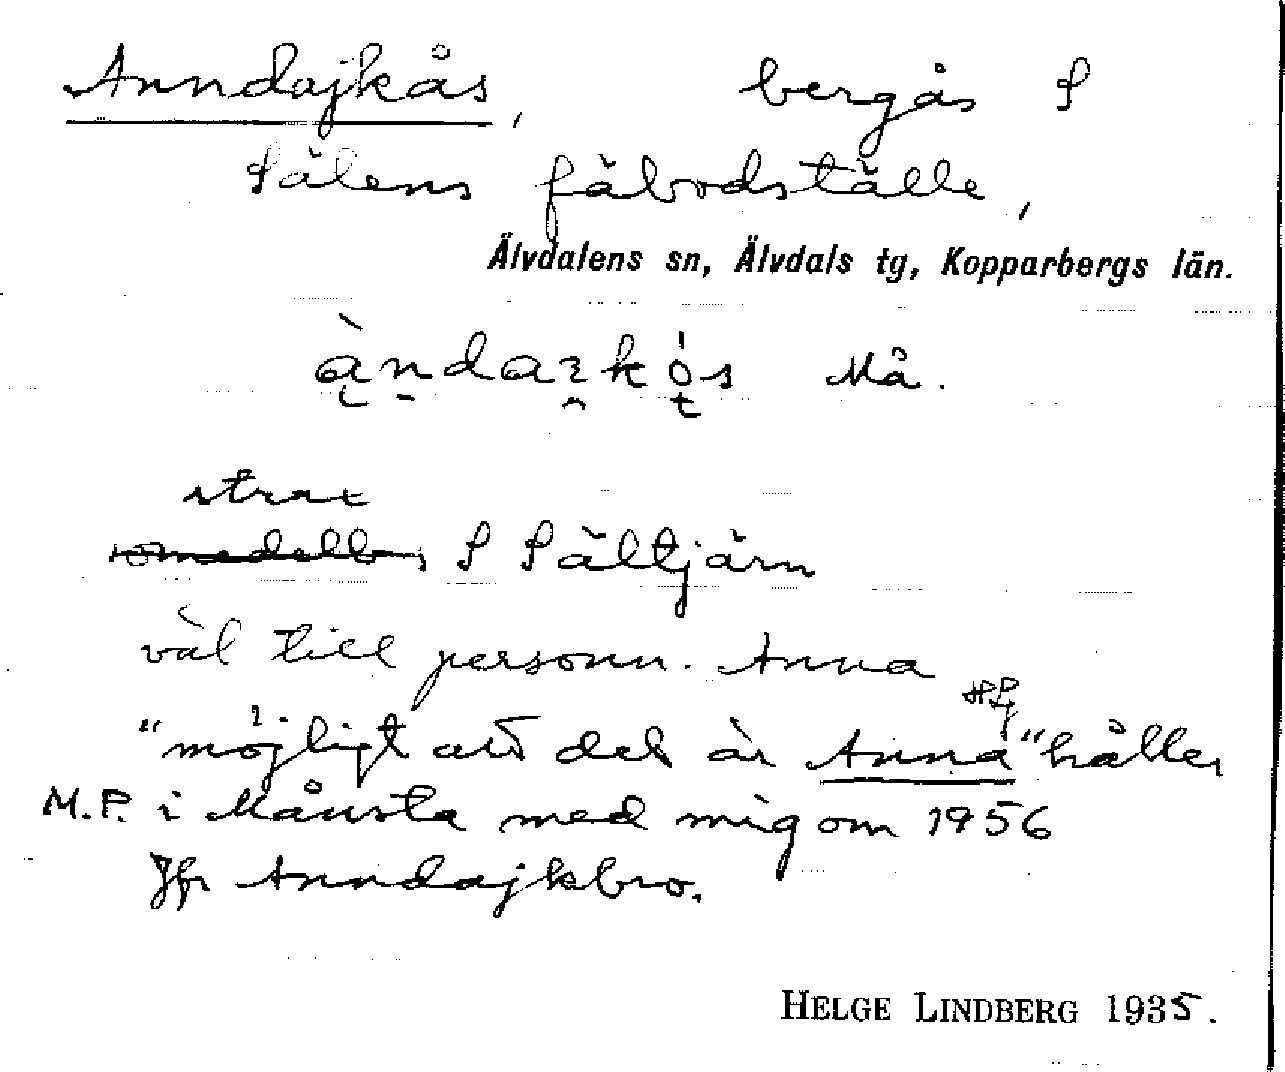 Anndajkås, bergås S
Sälens fäbodställe,
Älvdalens sn, Älvdals tg, Kopparbergs län.
Må.
strax
S Sältjärn
väl till personn. Anna
"möjligt att det är Anna" håller
M.P. i Månsta med mig om 1956
Jfr Anndajkbro.
HELGE LINDBERG 1935.